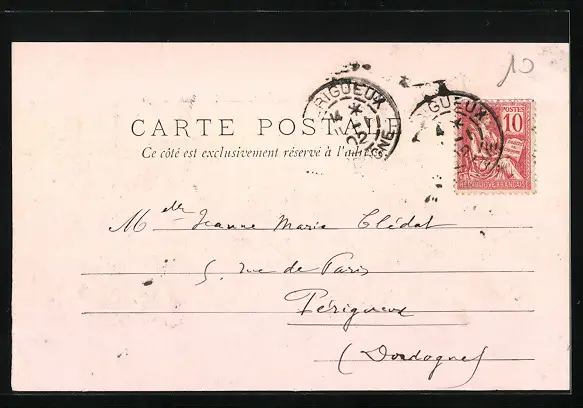 10
CARTE POSTALE
Ce côté est exclusivement réservé à l'adresse
PÉRIGUEUX
DORDOGNE
PÉRIGUEUX
POSTES
10
REPUBLIQUE FRANÇAISE
Melle Jeanne Marie Clédat
5, rue de Paris
Périgueux
(Dordogne)